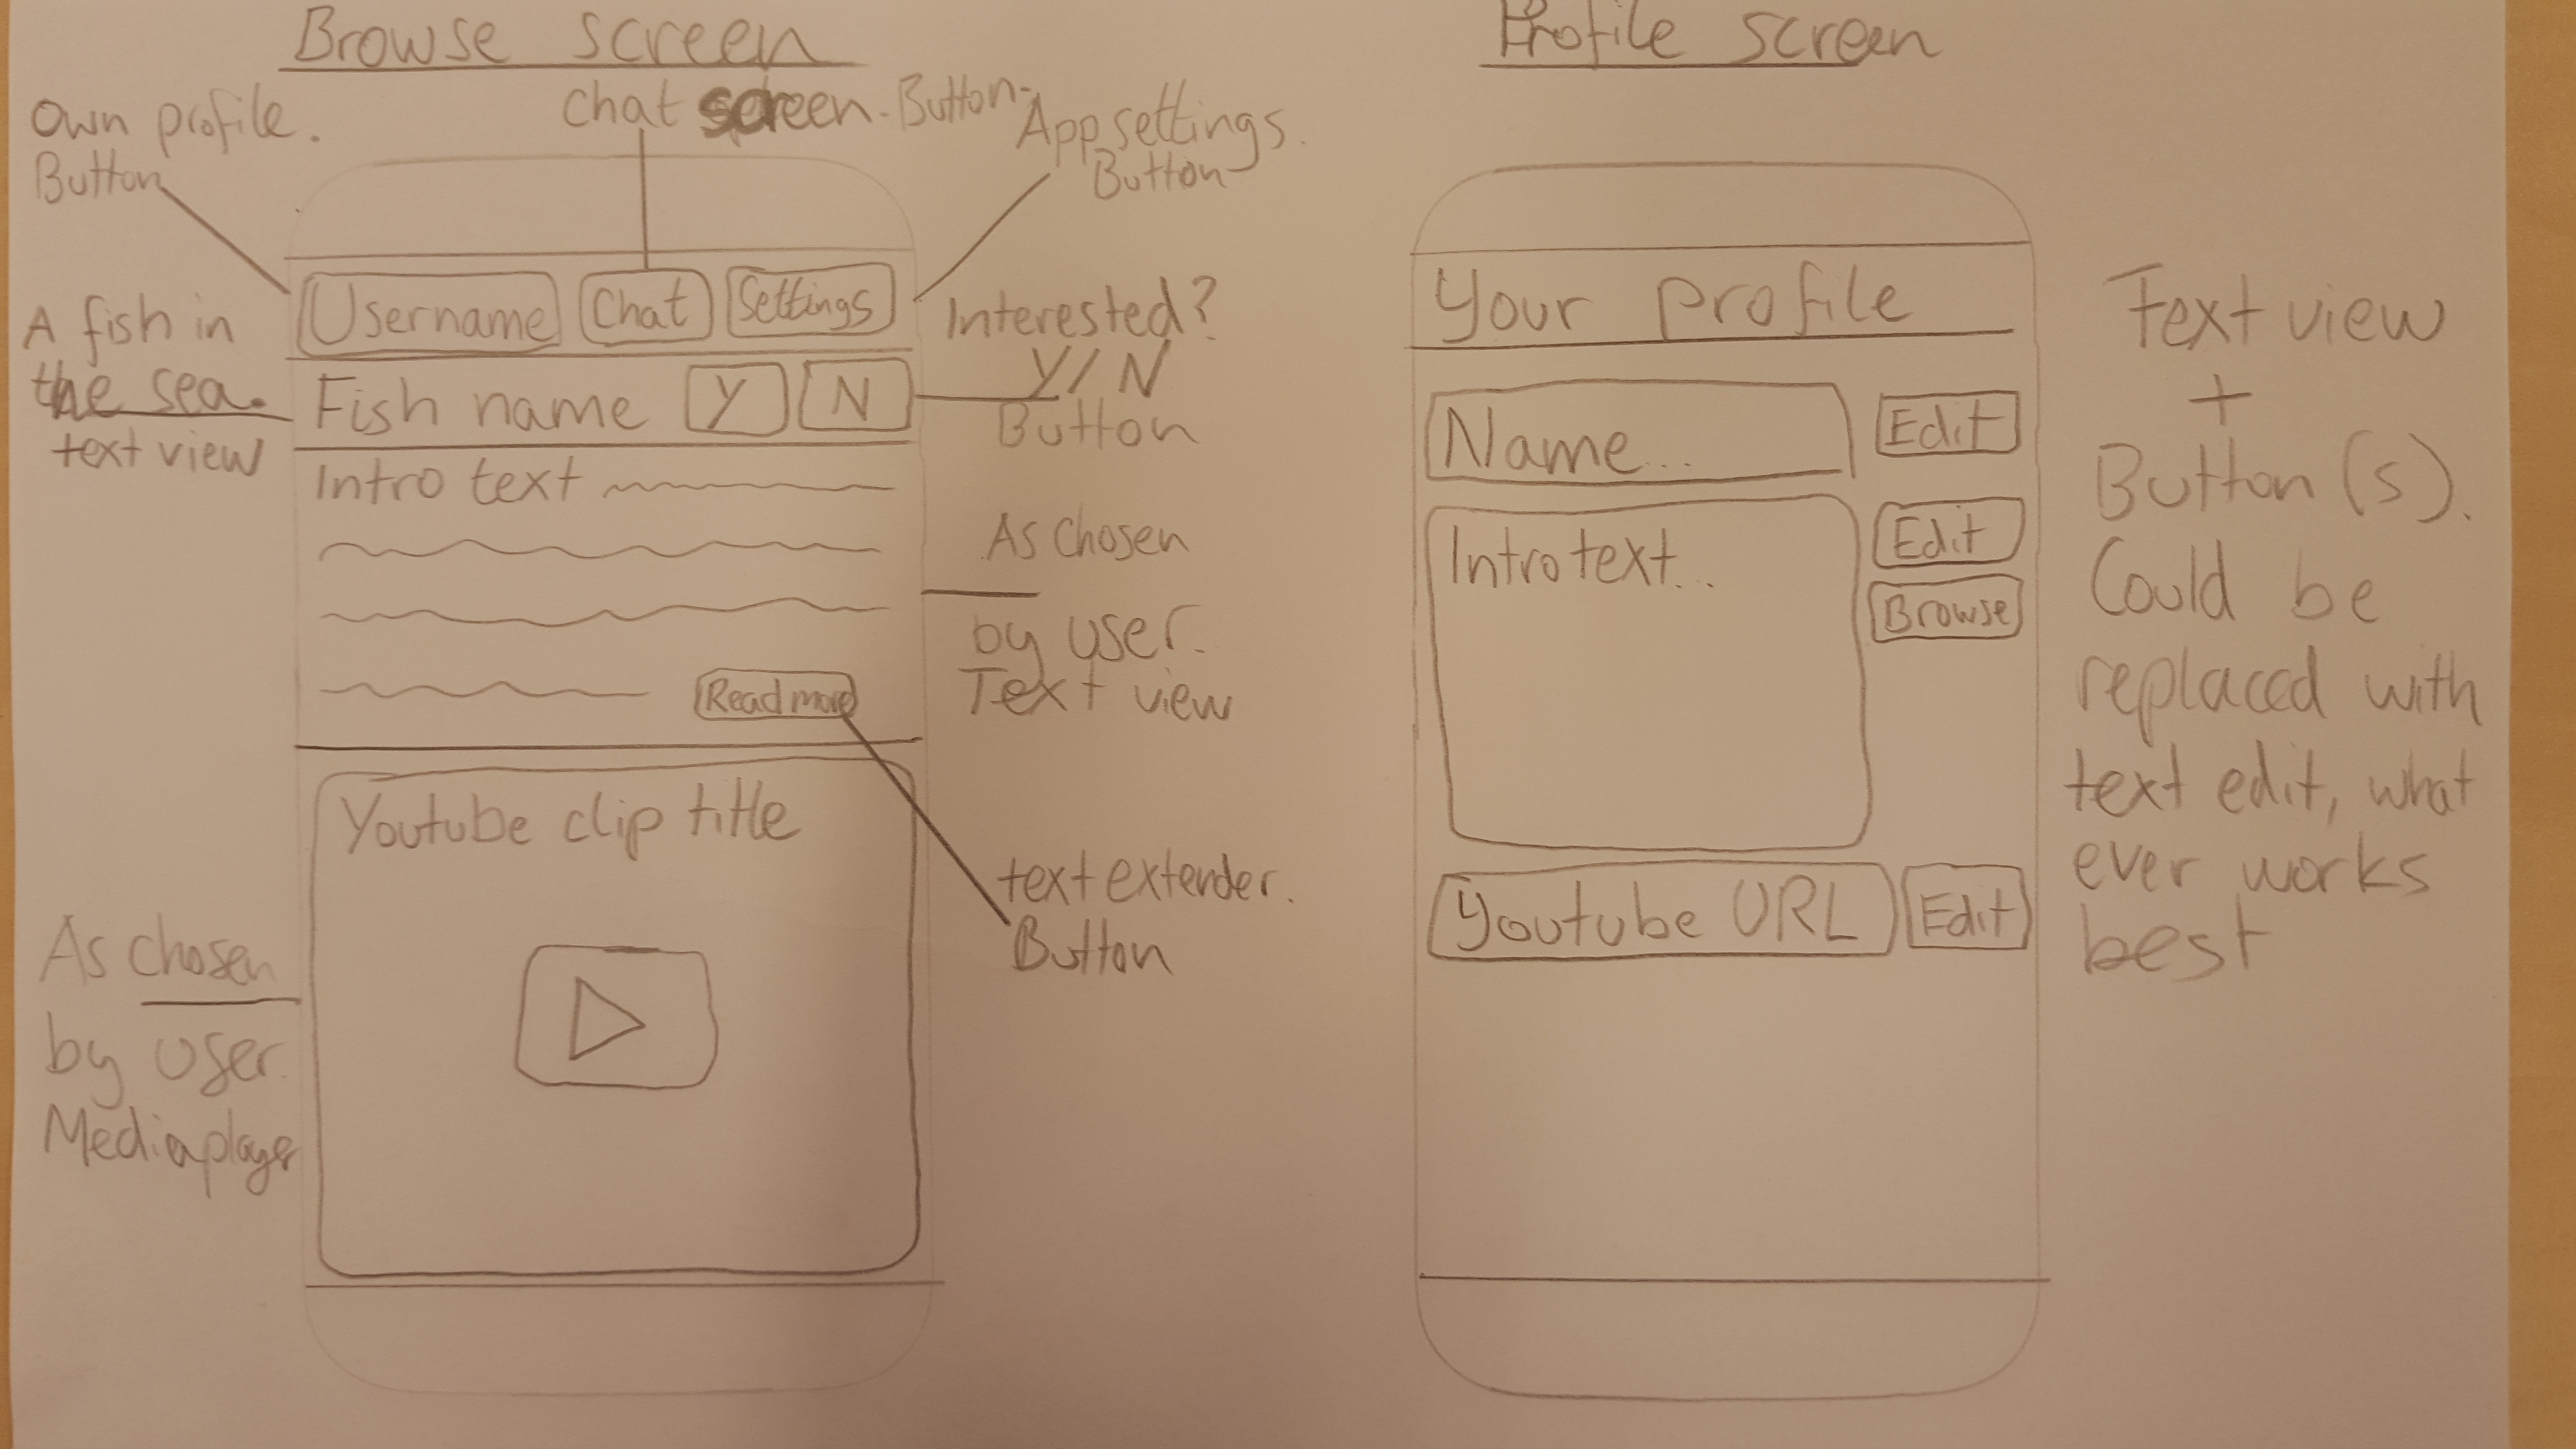 Browse screen
Own profile.
Button
Chat screen. Button
App settings.
Button
Username
Chat
Settings
A fish in
the sea.
text view
Fish name
Y
N
Interested?
Y/N
Button
Intro text
Read more
As chosen
by user.
Text view
Youtube clip title
text extender.
Button
As chosen
by user.
Mediaplayer
Profile screen
Your profile
Name...
Edit
Intro text...
Edit
Browse
Youtube URL
Edit
Text view
+
Button(s).
Could be
replaced with
text edit, what
ever works
best